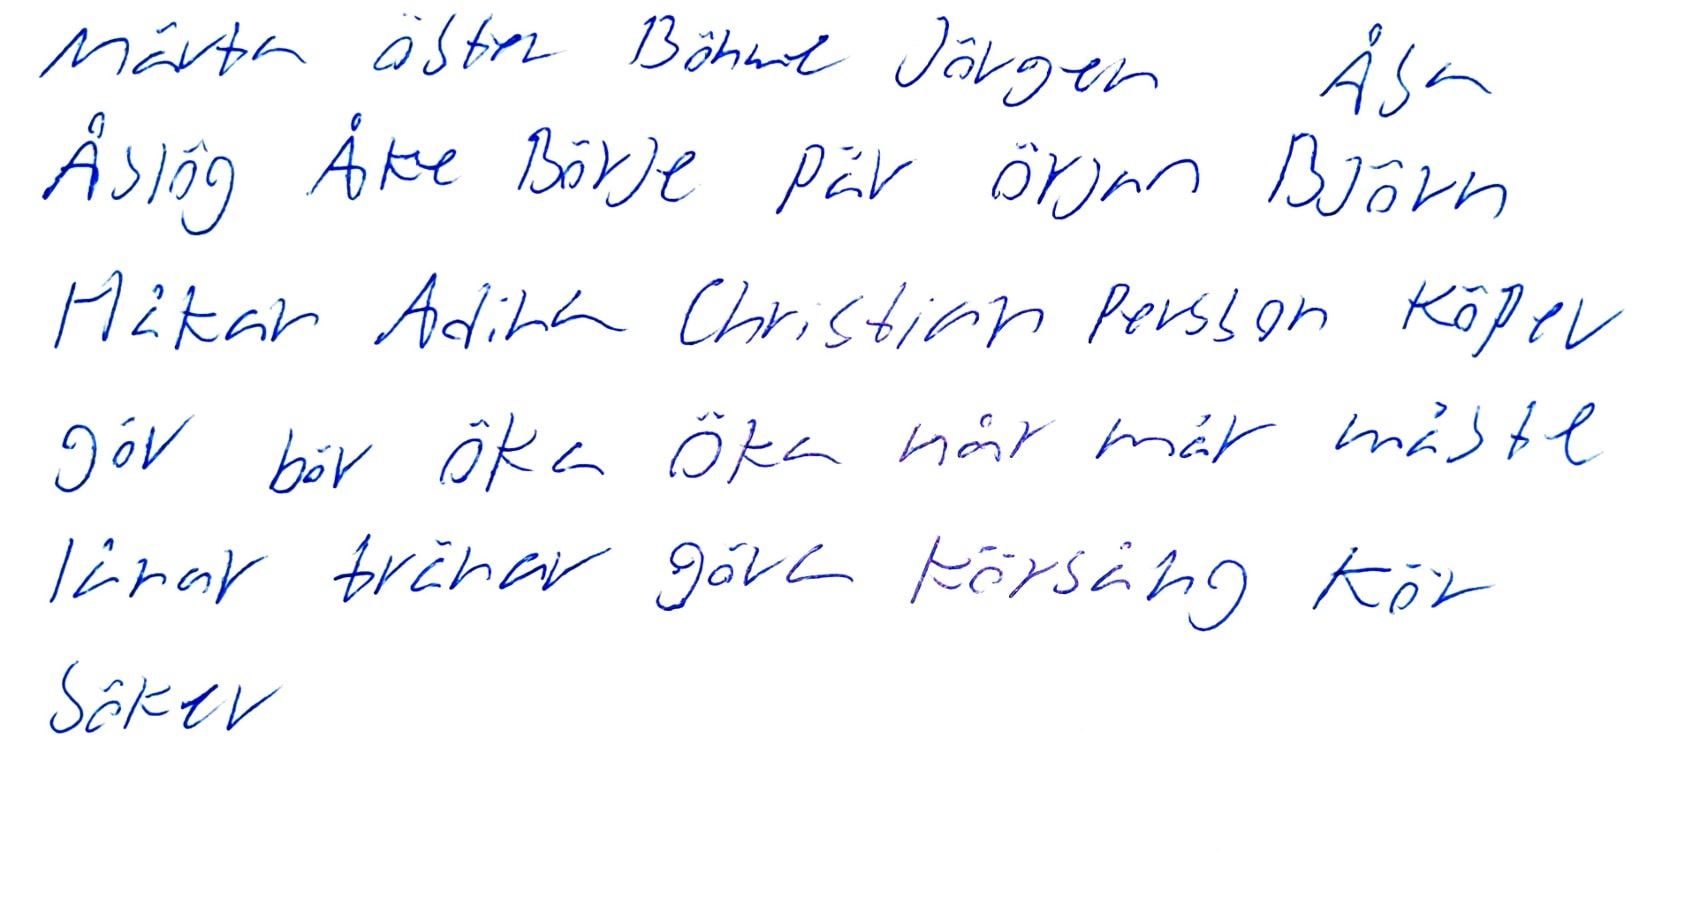 Märta öster Böhme Jörgen Åsa
Åslög Åke Börje Pär Örjan Björn
Håkan Adina Christian Persson Köper
gör bör öka Öka når mår måste
lånar tränar göra Körsång Kör
Söker